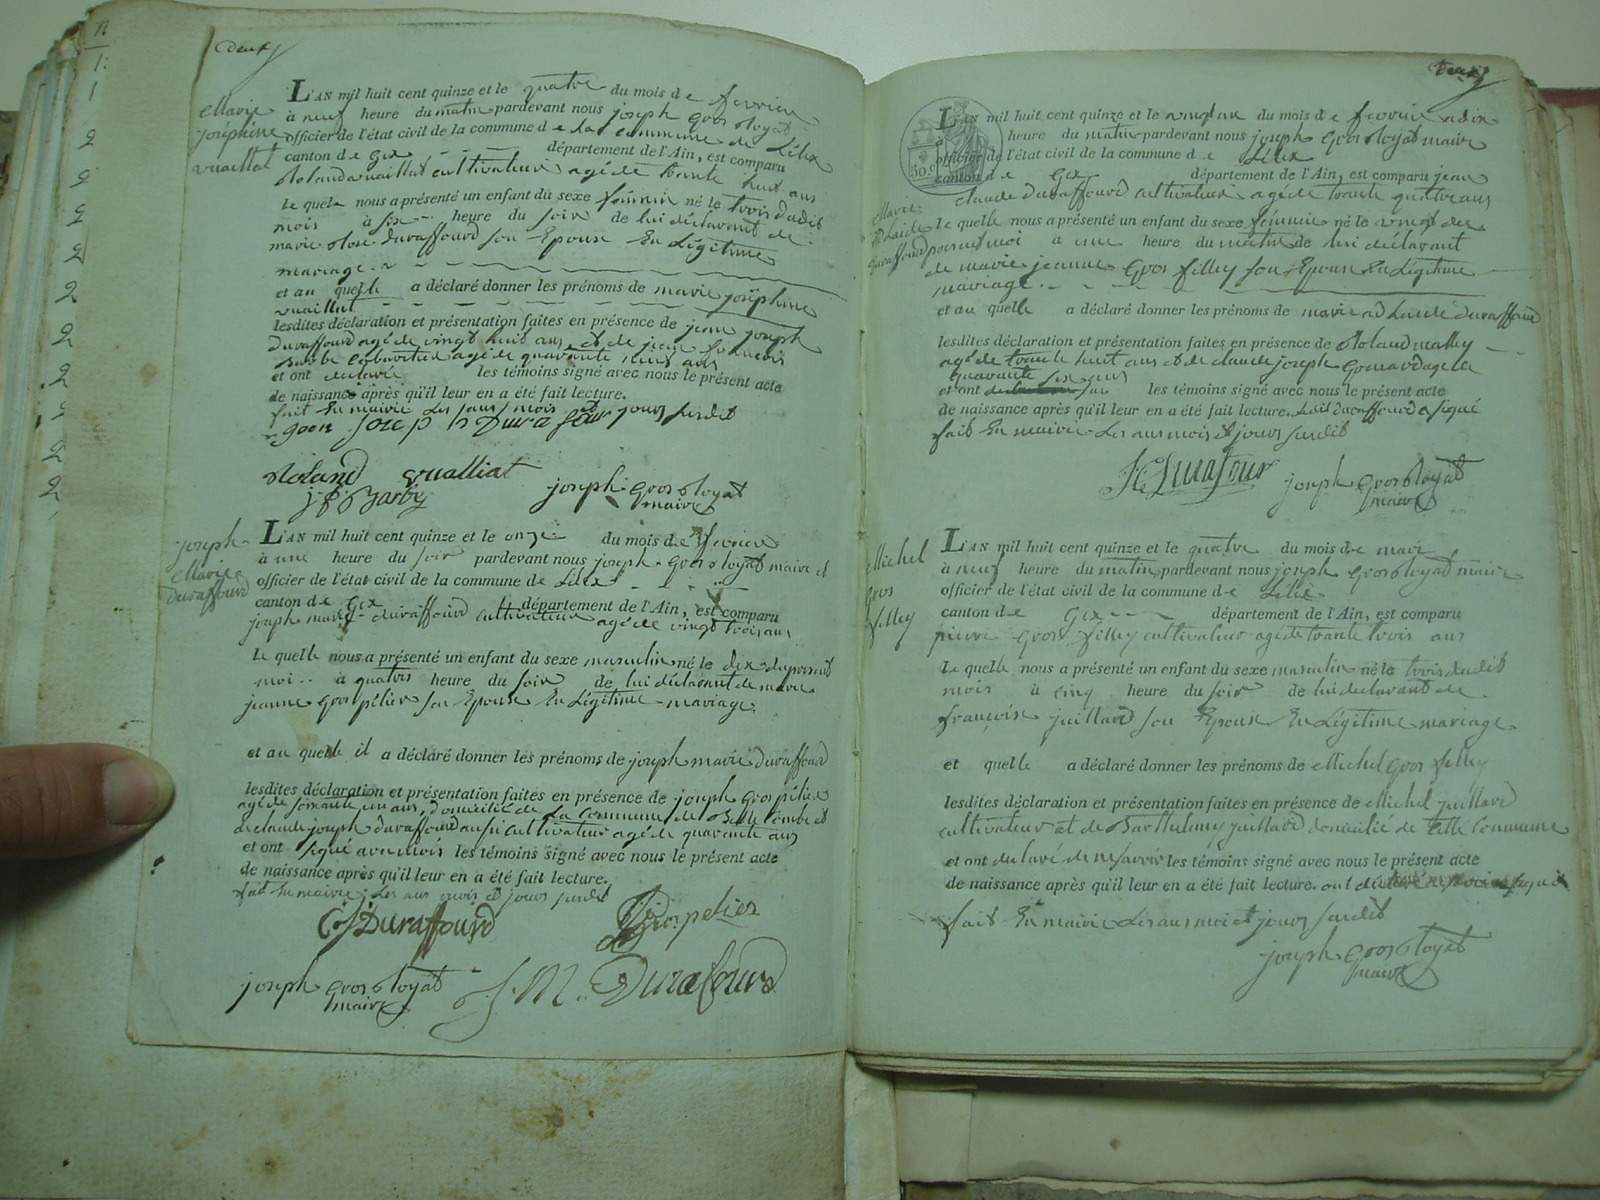 deux
Marie
joséphine
vuaillat
L'AN mil huit cent quinze et le quatre du mois de fevrier
à neuf heure du matin pardevant nous joseph Gros Royat
officier de l'état civil de la commune de la commune de Lélex
canton de Gex département de l'Ain, est comparu
Roland vuaillat cultivateur agé de trante huit ans
Le quel nous a présenté un enfant du sexe féminin né le trois dudit
mois à six heure du soir de lui déclarant de
marie Rose duraffourd son Epouse En Légitime
mariage
et au quelle a déclaré donner les prénoms de marie joséphine
vuaillat
lesdites déclaration et présentation faites en présence de jean joseph
duraffourd agé de vingt huit ans et de jean francois
agé de quarante neuf ans
et ont declaré les témoins signé avec nous le présent acte
de naissance après qu'il leur en a été fait lecture.
fait En mairie Les jours mois et jours susdit
joseph Durafour
Roland vualliat
J F Barbe joseph Gros Royat
maire
joseph
Marie
duraffourd
L'AN mil huit cent quinze et le onze du mois de fevrier
à une heure du soir pardevant nous joseph Gros Royat maire et
officier de l'état civil de la commune de Lélex
canton de Gex département de l'Ain, est comparu
joseph marie duraffourd cultivateur agé de vingt trois ans
Le quelle nous a présenté un enfant du sexe masculin né le dix du present
moi à quatre heure du soir de lui déclarant de marie
jeanne Grospélier son Epouse En Légitime mariage
et au quelle il a déclaré donner les prénoms de joseph marie duraffourd
lesdites déclaration et présentation faites en présence de joseph Grospélier
agé de soixante un ans, domicilié de La Commune de Belle Combe et
de claude joseph duraffourd aussi cultivateur agé de quarante ans
et ont signé avec mois les témoins signé avec nous le présent acte
de naissance après qu'il leur en a été fait lecture.
fait En mairie Les ans mois et jours susdit
C J Duraffourd Grospelier
joseph Gros Royat J. M. Durafourd
maire
deux
50 c
L'AN mil huit cent quinze et le vingt un du mois de fevrier a dix
heure du matin pardevant nous joseph Gros Royat maire
officier de l'état civil de la commune de Lélex
canton de Gex département de l'Ain, est comparu jean
claude duraffourd cultivateur agé de trante quatre ans
Marie
adelaide
duraffourd
Le quelle nous a présenté un enfant du sexe féminin né le vingt du
present moi à une heure du matin de lui déclarant
de marie jeanne Gros filley son Epouse En Légitime
mariage
et au quelle a déclaré donner les prénoms de marie adelaide duraffourd
lesdites déclaration et présentation faites en présence de Roland
agé de trante huit ans et de claude joseph agé de
quarante six ans
et ont les témoins signé avec nous le présent acte
de naissance après qu'il leur en a été fait lecture. duraffourd a signé
fait En mairie Les ans mois et jours susdit
J C Durafour joseph Gros Royat
maire
Michel
gros
filley
L'AN mil huit cent quinze et le quatre du mois de mars
à neuf heure du matin pardevant nous joseph Gros Royat maire
officier de l'état civil de la commune de Lélex
canton de Gex département de l'Ain, est comparu
pierre Gros filley cultivateur agé de trante trois ans
Le quelle nous a présenté un enfant du sexe masculin né le trois dudit
mois à cinq heure du soir de lui déclarant de
françoise juillard son Epouse En Légitime mariage
et quelle a déclaré donner les prénoms de Michel Gros filley
lesdites déclaration et présentation faites en présence de Michel juillard
cultivateur et de Barthelemy juillard domicilié de cette Commune
et ont declaré de ne savoir les témoins signé avec nous le présent acte
de naissance après qu'il leur en a été fait lecture. ont
fait En mairie Les ans moi et jours susdit
joseph Gros Royat
maire